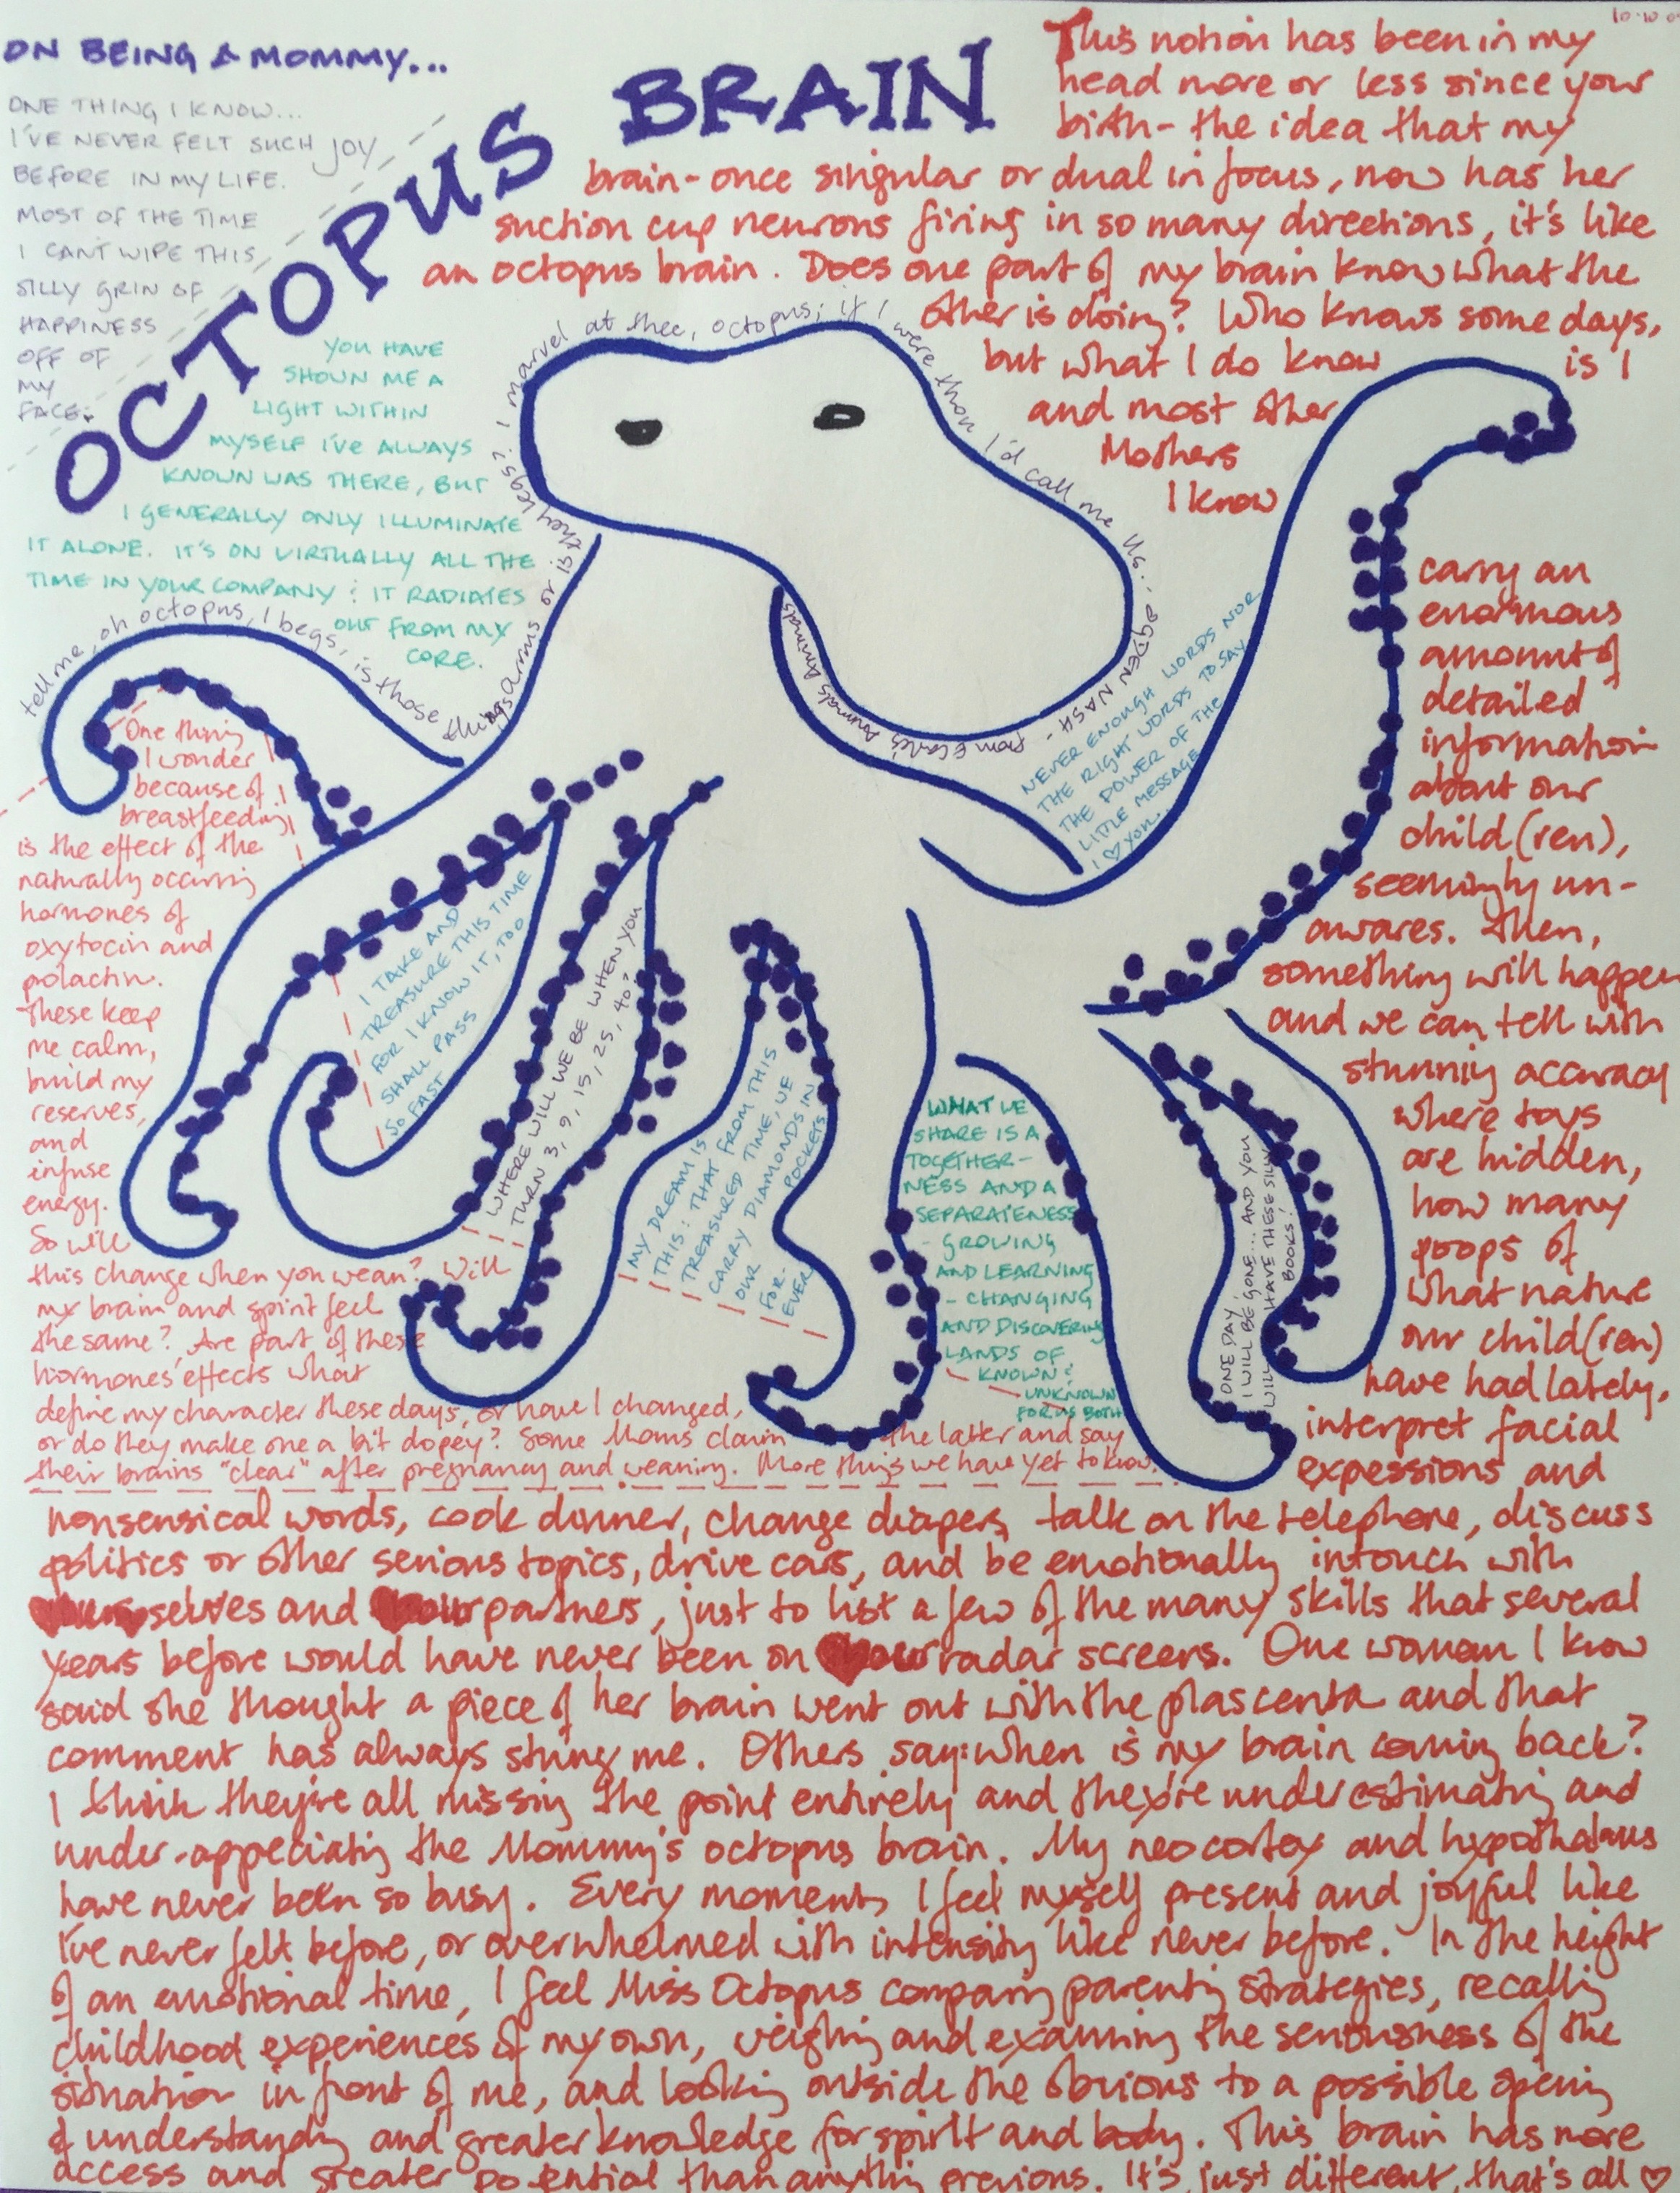 ON BEING A MOMMY...
ONE THING I KNOW...
I'VE NEVER FELT SUCH JOY
BEFORE IN MY LIFE.
MOST OF THE TIME
I CAN'T WIPE THIS
SILLY GRIN OF
HAPPINESS
OFF OF
MY
FACE.
OCTOPUS BRAIN
This notion has been in my
head more or less since your
birth - the idea that my
brain - once singular or dual in focus, now has her
suction cup neurons firing in so many directions, it's like
an octopus brain. Does one part of my brain know what the
other is doing? Who knows some days,
but what I do know is I
and most other
Mothers
I know
carry an
enormous
amount of
detailed
information
about our
child(ren),
seemingly un-
awares. Then,
something will happen
and we can tell with
stunning accuracy
where toys
are hidden,
how many
poops of
what nature
our child(ren)
have had lately,
interpret facial
expessions and
nonsensical words, cook dinner, change diapers, talk on the telephone, discuss
politics or other serious topics, drive cars, and be emotionally intouch with
selves and our partners, just to list a few of the many skills that several
years before would have never been on our radar screens. One woman I know
said she thought a piece of her brain went out with the plascenta and that
comment has always stung me. Others say: when is my brain coming back?
I think they're all missing the point entirely and they're underestimating and
under-appeciating the Mommy's octopus brain. My neocortex and hypothalamus
have never been so busy. Every moment, I feel myself present and joyful like
I've never felt before, or overwhelmed with intensity like never before. In the height
of an emotional time, I feel Miss Octopus comparing parenting strategies, recalling
childhood experiences of my own, weighing and examining the seriousness of the
situation in front of me, and looking outside the obvious to a possible opening
of understanding and greater knowledge for spirit and body. This brain has more
access and greater potential than anything previous. It's just different, that's all ♡
YOU HAVE
SHOWN ME A
LIGHT WITHIN
MYSELF I'VE ALWAYS
KNOWN WAS THERE, BUT
I GENERALLY ONLY ILLUMINATE
IT ALONE. IT'S ON VIRTUALLY ALL THE
TIME IN YOUR COMPANY & IT RADIATES
OUT FROM MY
CORE.
tell me, oh octopus, I begs, is those things arms or is they legs? I marvel at thee, octopus; if I were thou I'd call me Us... OGDEN NASH - from Eric Carle's Animals Animals
NEVER ENOUGH WORDS NOR
THE RIGHT WORDS TO SAY
THE POWER OF THE
LITTLE MESSAGE
I ♡ you.
One thing
I wonder
because of
breastfeeding
is the effect of the
naturally occuring
hormones of
oxytocin and
polactin.
These keep
me calm,
build my
reserves,
and
infuse
energy.
So will
this change when you wean? Will
my brain and spirit feel
the same? Are part of these
hormones' effects what
define my character these days, or have I changed,
or do they make one a bit dopey? Some Moms claim the latter and say
their brains "clear" after pregnancy and weaning. More things we have yet to know.
I TAKE AND
TREASURE THIS TIME
FOR I KNOW IT, TOO
SHALL PASS
SO FAST
WHERE WILL WE BE WHEN YOU
TURN 3, 9, 15, 25, 40?
MY DREAM IS
THIS: THAT FROM THIS
TREASURED TIME, WE
CARRY DIAMONDS IN
OUR POCKETS
FOR-
EVER
WHAT WE
SHARE IS A
TOGETHER-
NESS AND A
SEPARATENESS
- GROWING
AND LEARNING
- CHANGING
AND DISCOVERING
LANDS OF
KNOWN &
UNKNOWN
FOR US BOTH
ONE DAY,
I WILL BE GONE... AND YOU
WILL HAVE THESE SILLY
BOOKS!